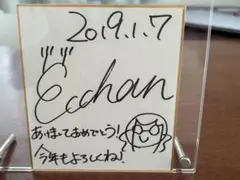 2019.1.7
Ecchan
あけましておめでとう!
今年もよろしくね!